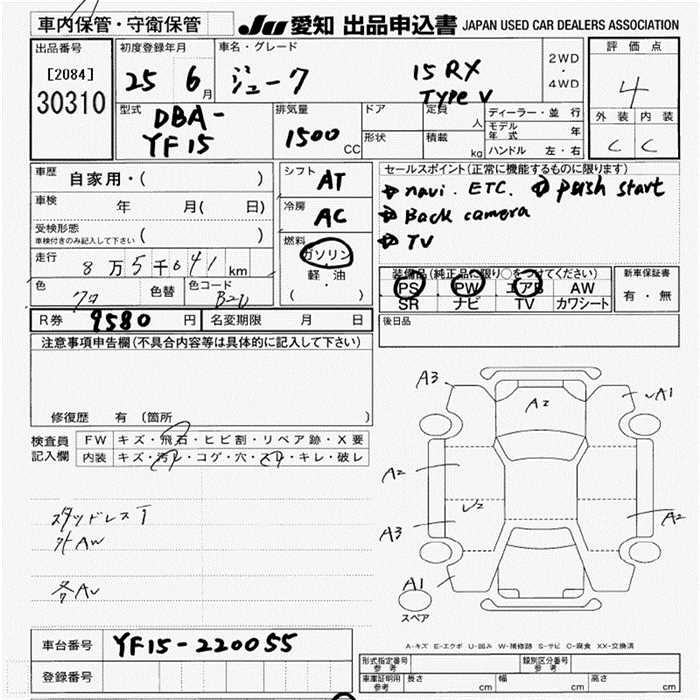 車内保管・守衛保管
JU 愛知 出品申込書 JAPAN USED CAR DEALERS ASSOCIATION
出品番号
[2084]
30310
初度登録年月
25 6 月
車名・グレード
ジューク
15RX
TYPE V
2WD
・
4WD
評価点
4
外装 内装
C C
型式
DBA-
YF15
排気量
1500 CC
ドア
形状
定員
人
積載
kg
ディーラー・並行
モデル年式 年
ハンドル 左・右
車歴 自家用・( )
車検 年 月( 日)
受検形態
車検付きのみ記入して下さい ( )
走行 8万5千641km
色 クロ 色替 色コード B20
シフト AT
冷房 AC
燃料
ガソリン
軽・油
( )
セールスポイント(正常に機能するものに限ります)
navi. ETC. push start
Back camera
TV
装備品(純正品に限り○をつけてください)
PS PW エアB AW
SR ナビ TV カワシート
新車保証書
有・無
R券 9580 円 名変期限 月 日
後日品
注意事項申告欄(不具合内容等は具体的に記入して下さい)
修復歴 有 (箇所 )
検査員記入欄
FW キズ・飛石・ヒビ割・リペア跡・X要
内装 キズ・汚レ・コゲ・穴・スレ・キレ・破レ
スタッドレスT
外AW
各AU
A3
A1
A2
A2
U2
A3
A2
A1
スペア
A-キズ E-エクボ U-凹み W-補修跡 S-サビ C-腐食 XX-交換済
車台番号 YF15-220055
登録番号
形式指定番号 参考
類別区分番号 参考
車庫証明用 参考 長さ cm 幅 cm 高さ cm